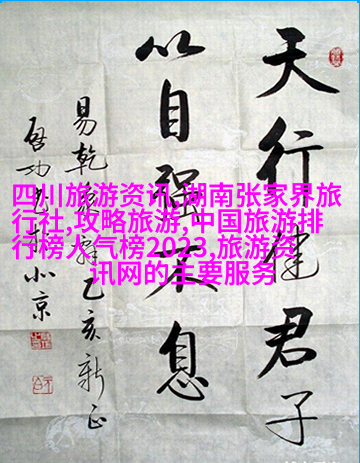 天行健君子
以自强不息
易乾象辞乙亥新正
啓功書于北京
四川旅游资讯,湖南张家界旅
行社,攻略旅游,中国旅游排
行榜人气榜2023,旅游资
讯网的主要服务